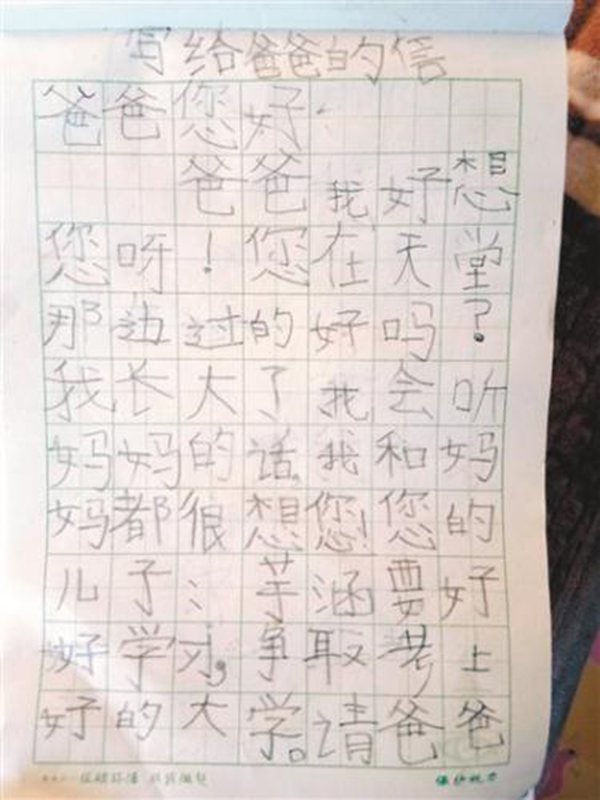 写给爸爸的信
爸爸您好
爸爸我好想
您呀！您在天堂
那边过的好吗？
我长大了我会听
妈妈的话，我和妈
妈都很想您！您的
儿子：芋涵要好
好学习，争取考上
好的大学。请爸爸
保护视力